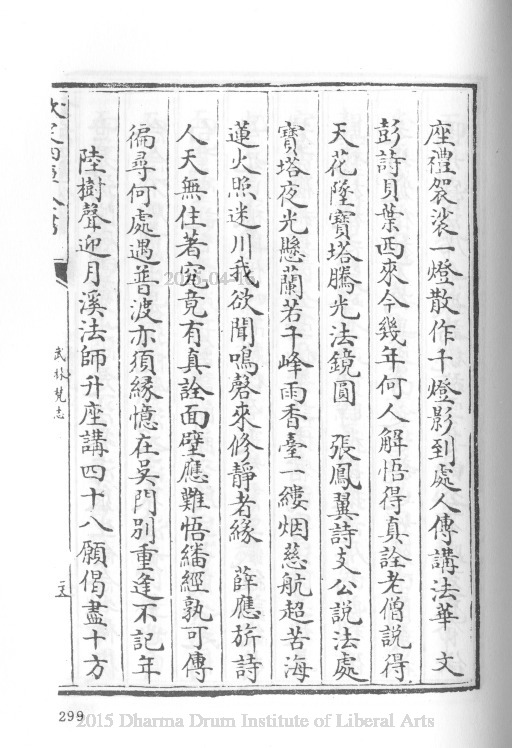 座禮袈裟一燈散作千燈影到處人傳講法華　文
彭詩貝葉西來今幾年何人解悟得真詮老僧説得
天花墜寶塔騰光法鏡圓　張鳳翼詩支公説法處
寳塔夜光懸蘭若千峰雨香臺一縷烟慈航超苦海
蓮火照迷川我欲聞鳴磬來修靜者緣　薛應旂詩
人天無住著究竟有真詮面壁應難悟繙經孰可傳
徧尋何處遇普波亦須緣憶在吳門别重逢不記年
陸樹聲迎月溪法師升座講四十八願偈盡十方
武林梵志
299
2015 Dharma Drum Institute of Liberal Arts